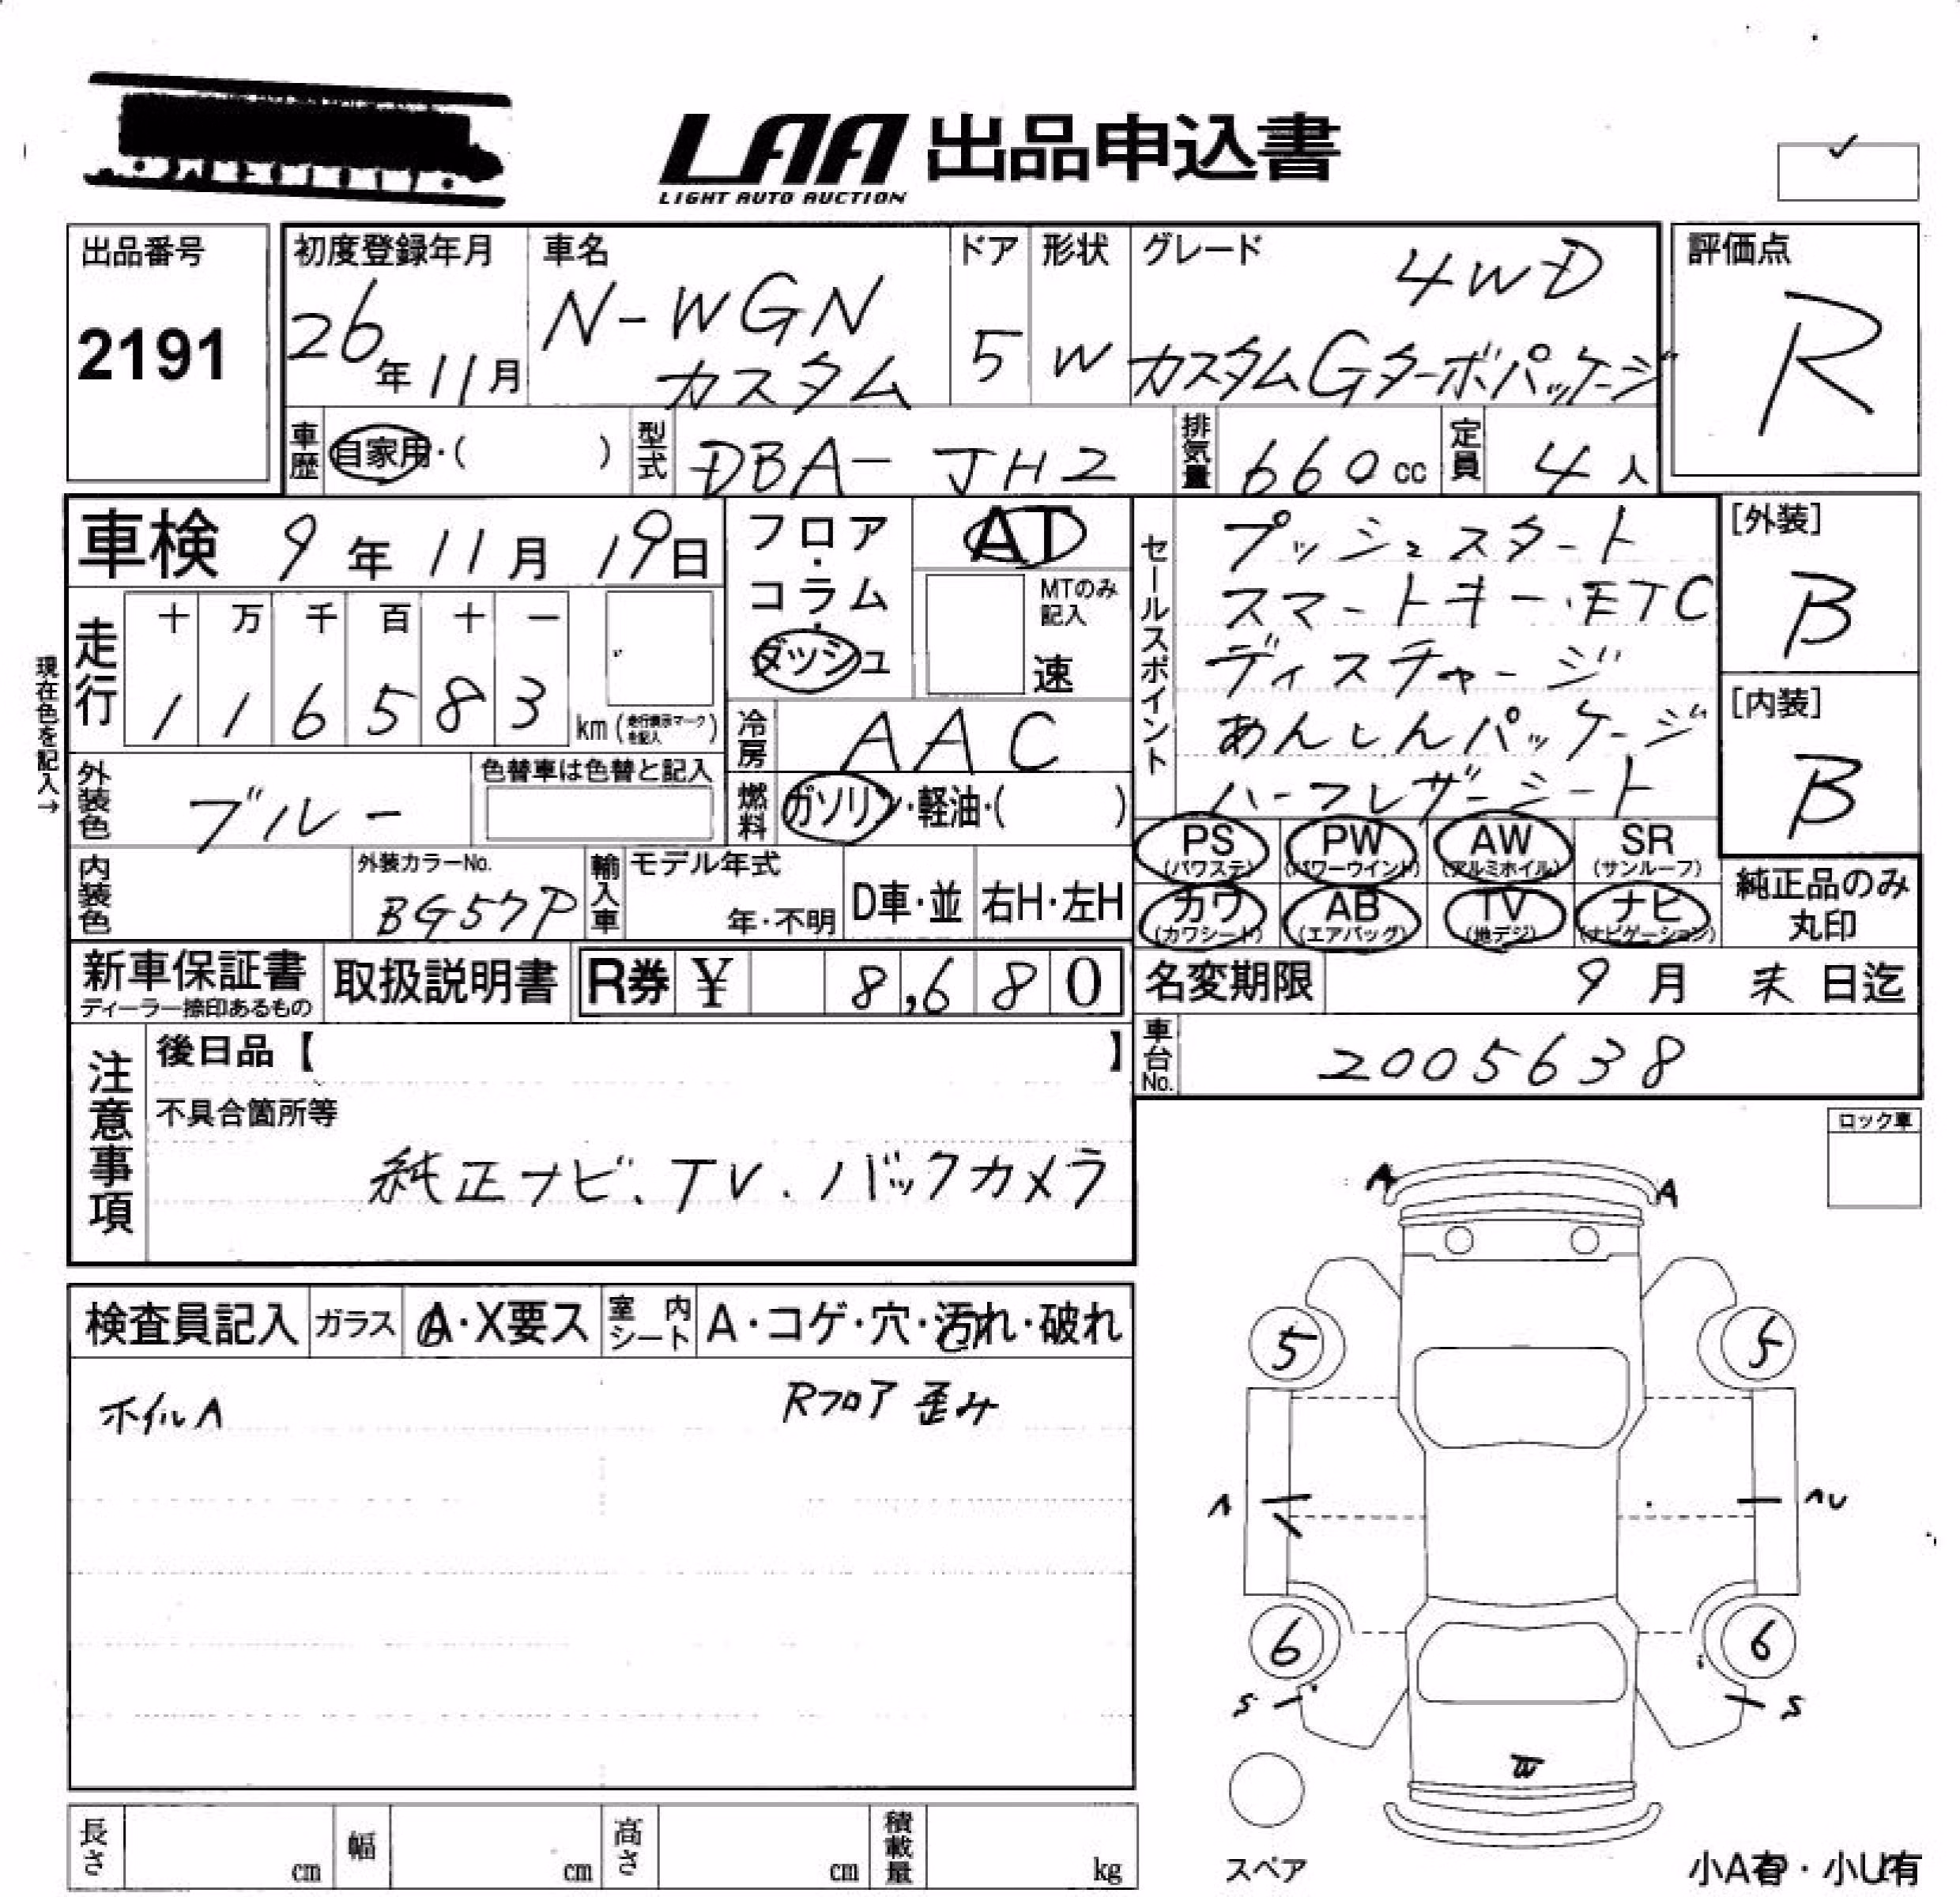 LAA 出品申込書
LIGHT AUTO AUCTION
出品番号
2191
初度登録年月
26年11月
車名
N-WGN
カスタム
ドア
5
形状
W
グレード
4WD
カスタムGターボパッケージ
評価点
R
車歴
自家用・( )
型式
DBA-JH2
排気量
660cc
定員
4人
車検 9年11月19日
走行
十 万 千 百 十 一
1 1 6 5 8 3
km(走行表示マークを記入)
現在色を記入→
外装色
ブルー
色替車は色替と記入
内装色
外装カラーNo.
BG57P
フロア・
コラム・
ダッシュ
AT
MTのみ
記入
速
冷房
AAC
燃料
ガソリン・軽油・( )
輸入車
モデル年式
年・不明
D車・並
右H・左H
セールスポイント
プッシュスタート
スマートキー・ETC
ディスチャージ
あんしんパッケージ
ハーフレザーシート
[外装]
B
[内装]
B
PS
(パワステ)
PW
(パワーウインド)
AW
(アルミホイル)
SR
(サンルーフ)
カワ
(カワシート)
AB
(エアバッグ)
TV
(地デジ)
ナビ
(ナビゲーション)
純正品のみ
丸印
新車保証書
ディーラー捺印あるもの
取扱説明書
R券 ¥ 8,680
名変期限 9月 末日迄
車台No.
2005638
注意事項
後日品【 】
不具合箇所等
純正ナビ、TV、バックカメラ
ロック車
検査員記入
ガラス
A・X要ス
室内シート
A・コゲ・穴・汚れ・破れ
ホイルA
Rフロア歪み
A
A
5
5
A
AU
6
6
S
S
W
スペア
小A有・小U有
長さ cm
幅 cm
高さ cm
積載量 kg